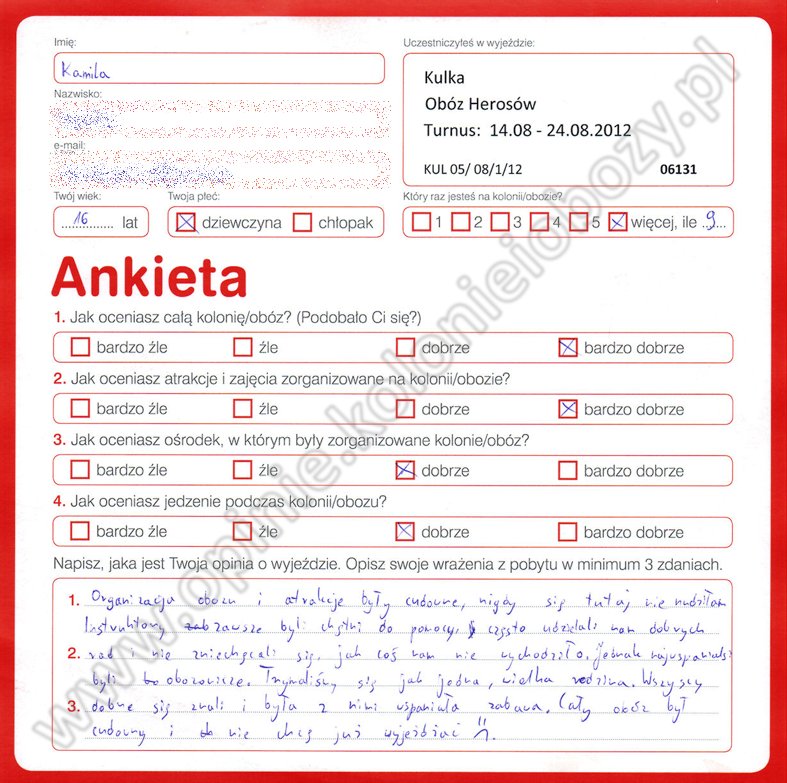 Imię:
Uczestniczyłeś w wyjeździe:
Kamila
Kulka
Obóz Herosów
Turnus: 14.08 - 24.08.2012
KUL 05/ 08/1/12 06131
Nazwisko:
e-mail:
Twój wiek: Twoja płeć: Który raz jesteś na kolonii/obozie?
16 lat dziewczyna chłopak 1 2 3 4 5 więcej, ile 9
Ankieta
1. Jak oceniasz całą kolonię/obóz? (Podobało Ci się?)
bardzo źle źle dobrze bardzo dobrze
2. Jak oceniasz atrakcje i zajęcia zorganizowane na kolonii/obozie?
bardzo źle źle dobrze bardzo dobrze
3. Jak oceniasz ośrodek, w którym były zorganizowane kolonie/obóz?
bardzo źle źle dobrze bardzo dobrze
4. Jak oceniasz jedzenie podczas kolonii/obozu?
bardzo źle źle dobrze bardzo dobrze
Napisz, jaka jest Twoja opinia o wyjeździe. Opisz swoje wrażenia z pobytu w minimum 3 zdaniach.
1. Organizacja obozu i atrakcje były cudowne, nigdy się tutaj nie nudziłam
Instruktorzy zawsze byli chętni do pomocy, często udzielali nam dobrych
2. rad i nie zniechęcali się, jak coś nam nie wychodziło. Jednak najwspanialsi
byli obozowicze. Trzymaliśmy się jak jedna, wielka rodzina. Wszyscy
3. dobrze się znali i była z nimi wspaniała zabawa. Cały obóz był
cudowny i nie chcę już wyjeżdżać
www.opinie.kolonieiobozy.pl